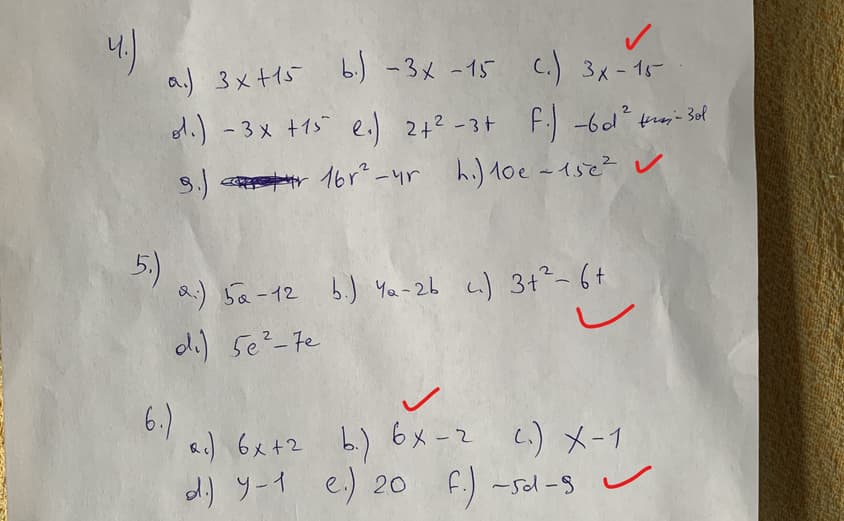 4.)
a.) 3x+15 b.) -3x -15 c.) 3x-15
d.) -3x +15 e.) 2t² -3t f.) -6d² -3d
g.) 16r² -4r h.) 10e -15e²
5.)
a.) 5a-12 b.) 4a-2b c.) 3t²- 6t
d.) 5e²-7e
6.)
a.) 6x+2 b.) 6x-2 c.) x-1
d.) y-1 e.) 20 f.) -5d-9